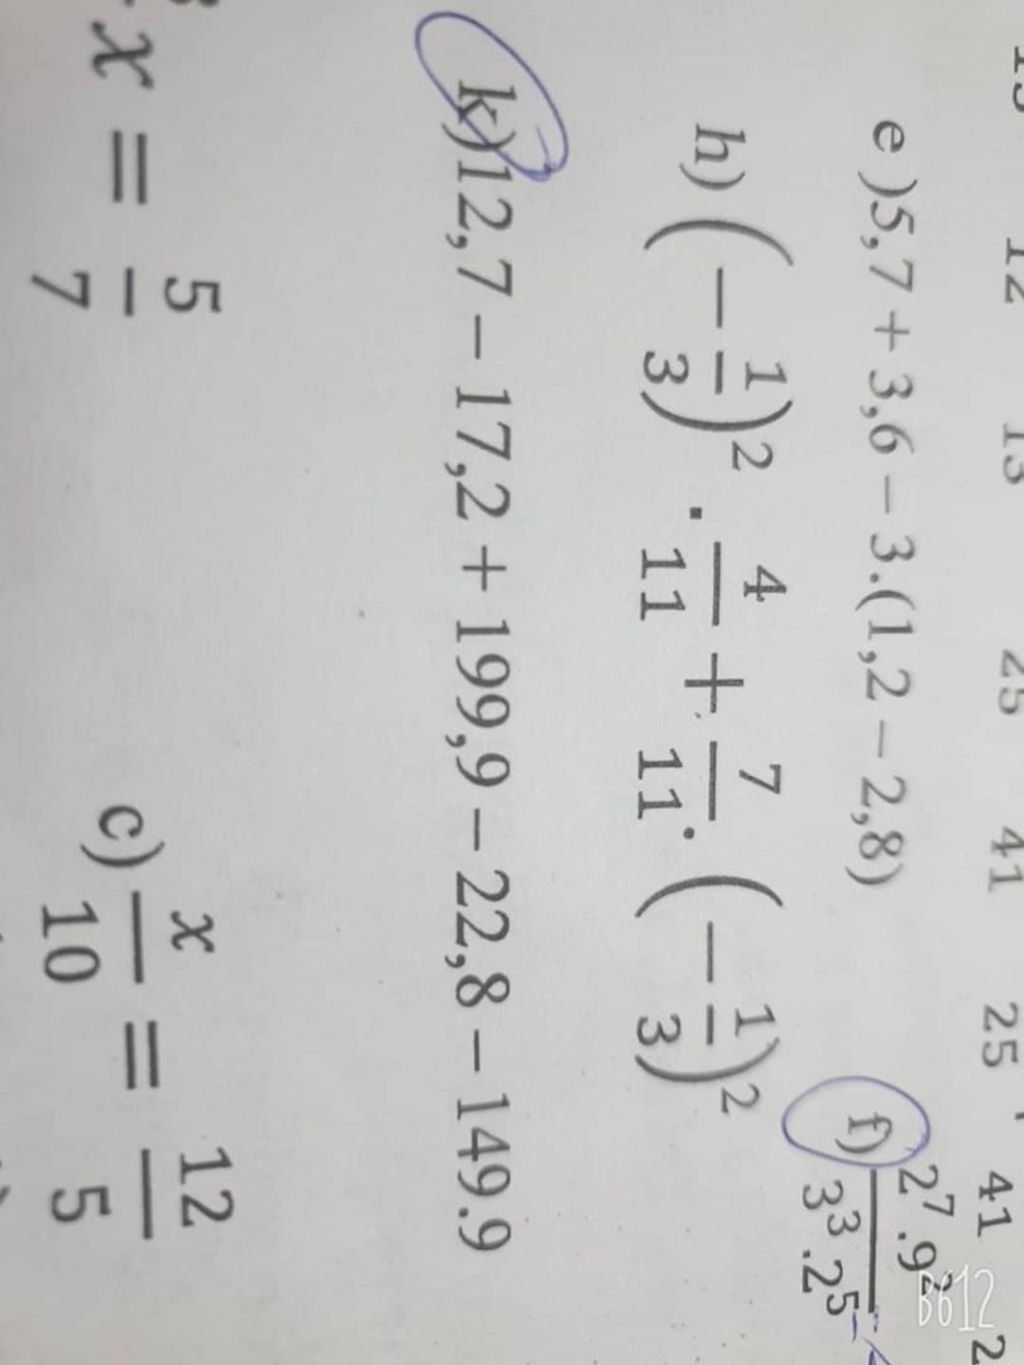 13 12 13 25 41 25 41 2
e )5,7 + 3,6 – 3.(1,2 – 2,8)
f) 2^7 .9^2 / 3^3 .2^5
h) (– 1/3)^2 . 4/11 + 7/11 . (– 1/3)^2
k)12,7 – 17,2 + 199,9 – 22,8 – 149.9
x = 5/7
c) x/10 = 12/5
B612